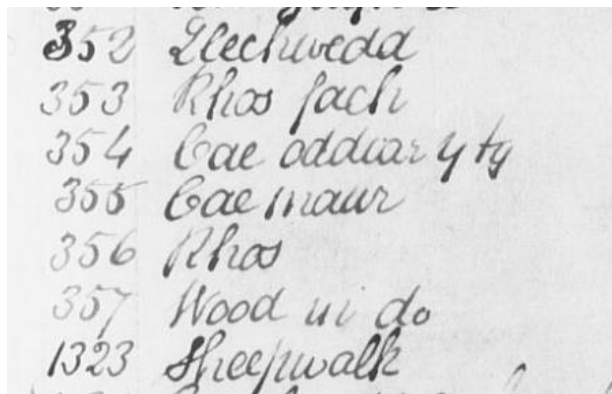 352 Llechwedd
353 Rhos fach
354 Cae oddiar y ty
355 Cae mawr
356 Rhos
357 Wood in do
1323 Sheepwalk